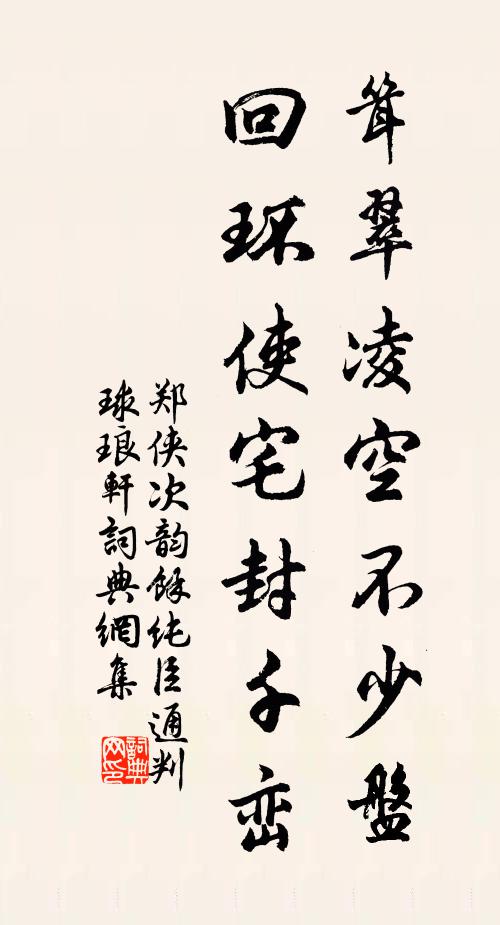 耸翠凌空不少盤
回环使宅封千峦
郑侠次韵餘纯臣通判
球琅軒詞典網集
詞典